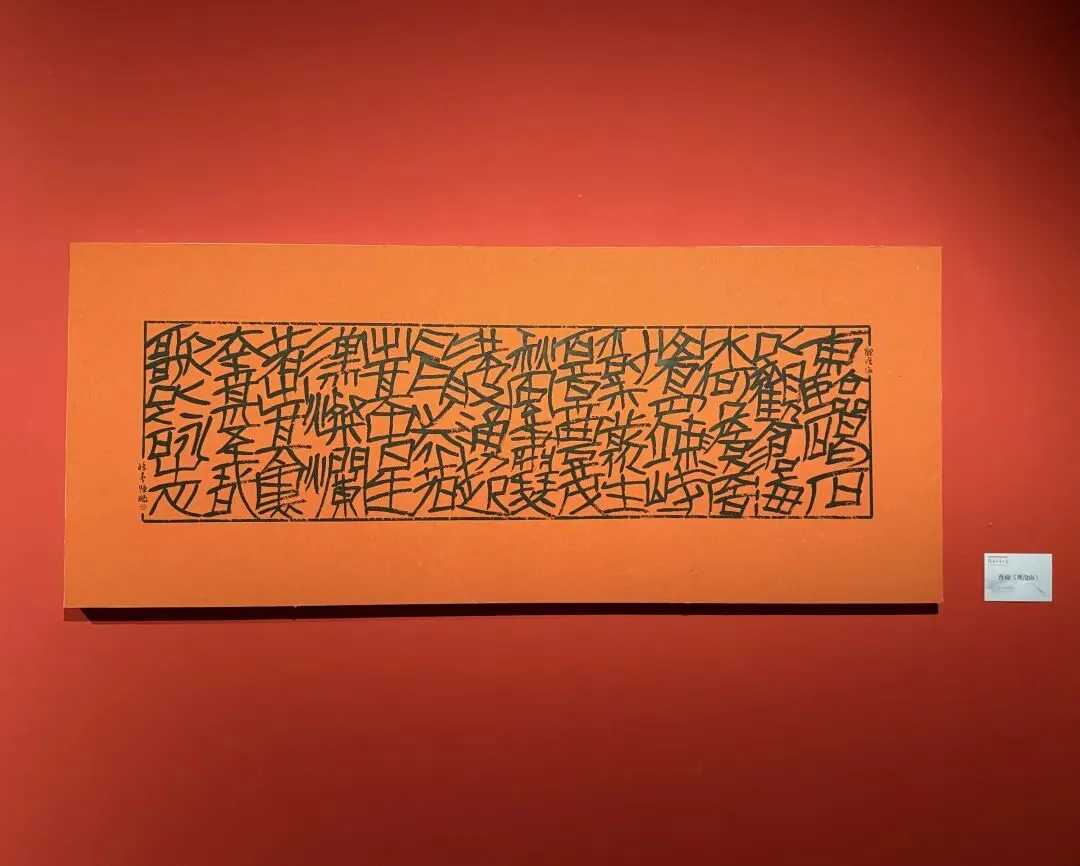 觀滄海
東臨碣石
以觀滄海
水何澹澹
山島竦峙
樹木叢生
百草豐茂
秋風蕭瑟
洪波湧起
日月之行若
出其中星
漢燦爛
若出其裏
幸甚至哉
歌以詠志
查律《观沧海》